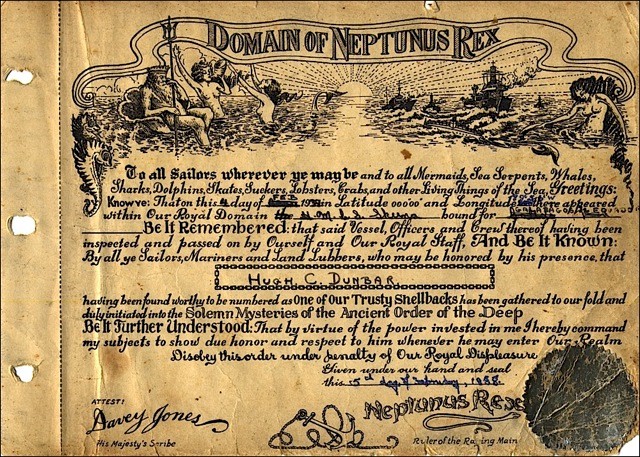 DOMAIN OF NEPTUNUS REX
To all Sailors wherever ye may be and to all Mermaids, Sea Serpents, Whales,
Sharks, Dolphins, Skates, Suckers, Lobsters, Crabs, and other Living Things of the Sea, Greetings:
Know ye: That on this day of 19 in Latitude 00000 and Longitude there appeared
within Our Royal Domain the H.M.C.S. bound for
Be It Remembered: that said Vessel, Officers and Crew thereof having been
inspected and passed on by Ourself and Our Royal Staff, And Be It Known:
By all ye Sailors, Mariners and Land Lubbers, who may be honored by his presence, that
HUGH C. DUNBAR
having been found worthy to be numbered as One of Our Trusty Shellbacks has been gathered to our fold and
duly initiated into the Solemn Mysteries of the Ancient Order of the Deep
Be It Further Understood: That by virtue of the power invested in me I hereby command
my subjects to show due honor and respect to him whenever he may enter Our Realm
Disobey this order under penalty of Our Royal Displeasure
Given under our hand and seal
this 5th day of February, 1938.
ATTEST:
Davey Jones
His Majesty's Scribe
Neptunus Rex
Ruler of the Raging Main